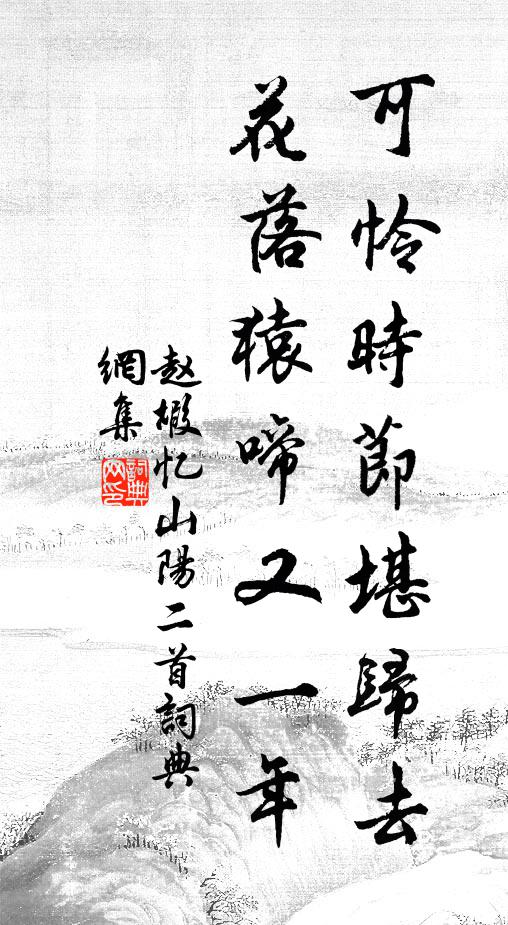 可怜時節堪歸去
花落猿啼又一年
赵嘏忆山陽二首詞典
網集
詞典
网印